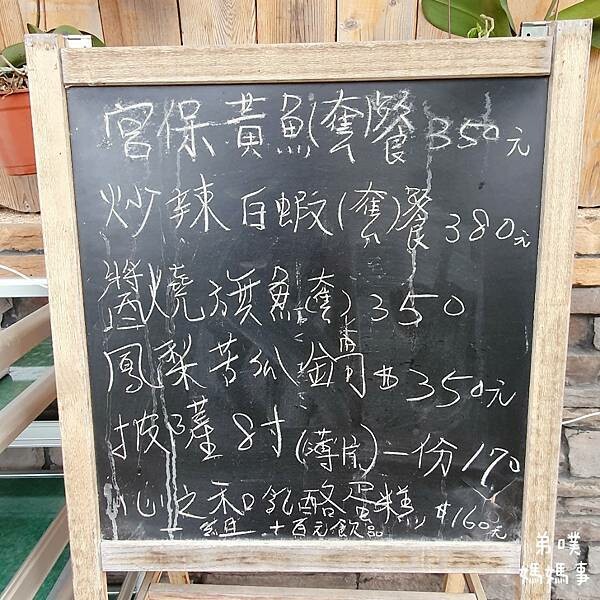 宮保黃魚(套)餐350元
炒辣白蝦(套)餐380元
醬燒旗魚(套)350
鳳梨苦瓜鍋$350元
披薩8寸(薄片)一份170
心之和乳酪蛋糕$160元
+百元飲品
弟噗
媽媽事